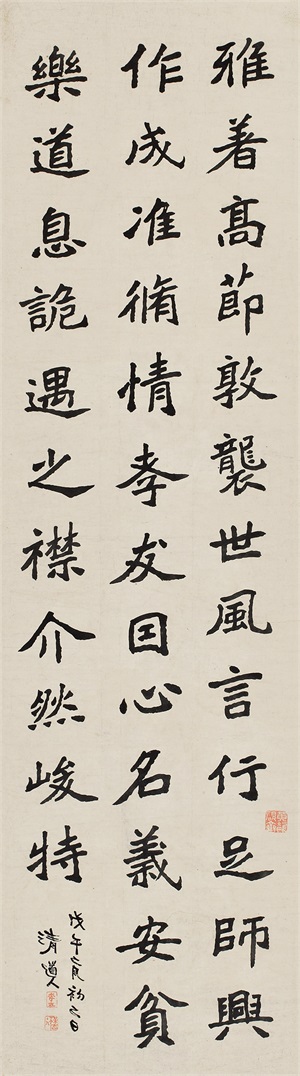 雅著高節敦襲世風言行足師興
作成准脩情孝友因心名義安貧
樂道息詭遇之襟介然峻特
戊午
清道人